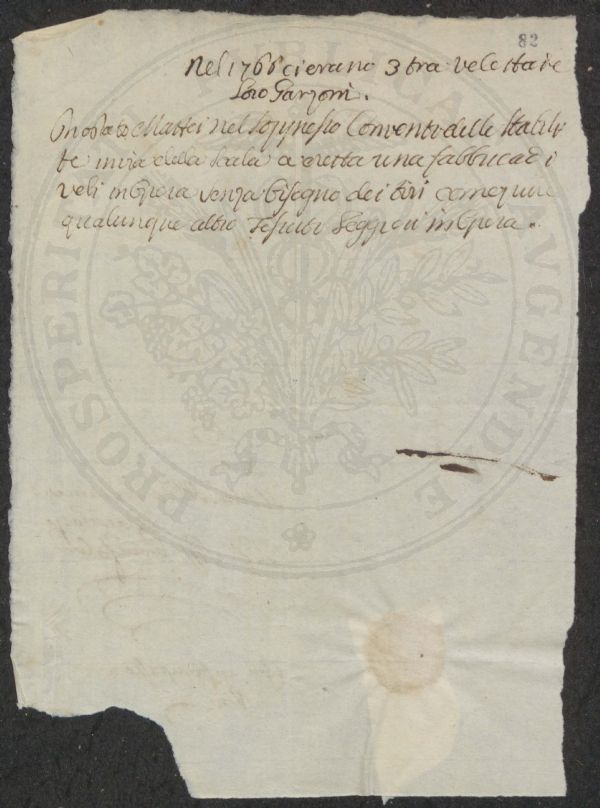 82
Nel 1766 ci erano 3 tra velettai e
Loro Garzoni.
Onorato Mattei nel soppresso Convento delle Stabilite
te in via della Scala a eretta una fabbrica di
veli in Opera senza bisogno dei tiri come pure
qualunque altro Tessuto Leggieri in Opera.
PROSPERITATI PUBLICAE AUGENDAE